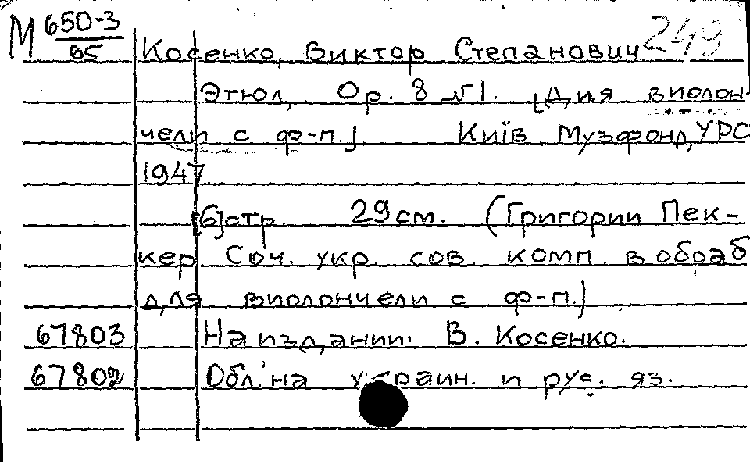 М 650-3 249
65 Косенко, Виктор Степанович
Этюд, Op. 8 №1. [Для виолон
чели с ф-п.] Київ Музфонд УРСР
1947
[6] стр. 29 см. (Григории Пек-
кер Соч. укр. сов. комп. в обраб
для виолончели с ф-п.)
67803 На издании: В. Косенко.
67802 Обл. на украин. и рус. яз.